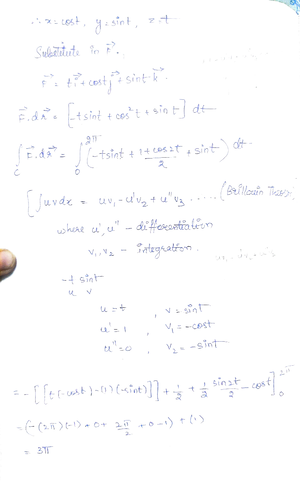 ∴ x = cost, y = sint, z = t
Substitute in F⃗.
F⃗ = t i⃗ + cost j⃗ + sint k⃗
F⃗.dr⃗ = [-t sint + cos²t + sint] dt
∫_C F⃗.dr⃗ = ∫_0^{2π} (-t sint + (1+cos2t)/2 + sint) dt
[∫uvdx = uv₁ - u'v₂ + u''v₃ .....
where u', u'' - differentiation
v₁, v₂ - integration.
-t sint
u v
u = t , v = sint
u' = 1 , v₁ = -cost
u'' = 0 , v₂ = -sint
= -[[t(-cost) - (1)(-sint)]] + 1/2 + 1/2 sin2t/2 - cost]_0^{2π}
= (-(2π)(-1) + 0 + 2π/2 + 0 - 1) + (1)
= 3π